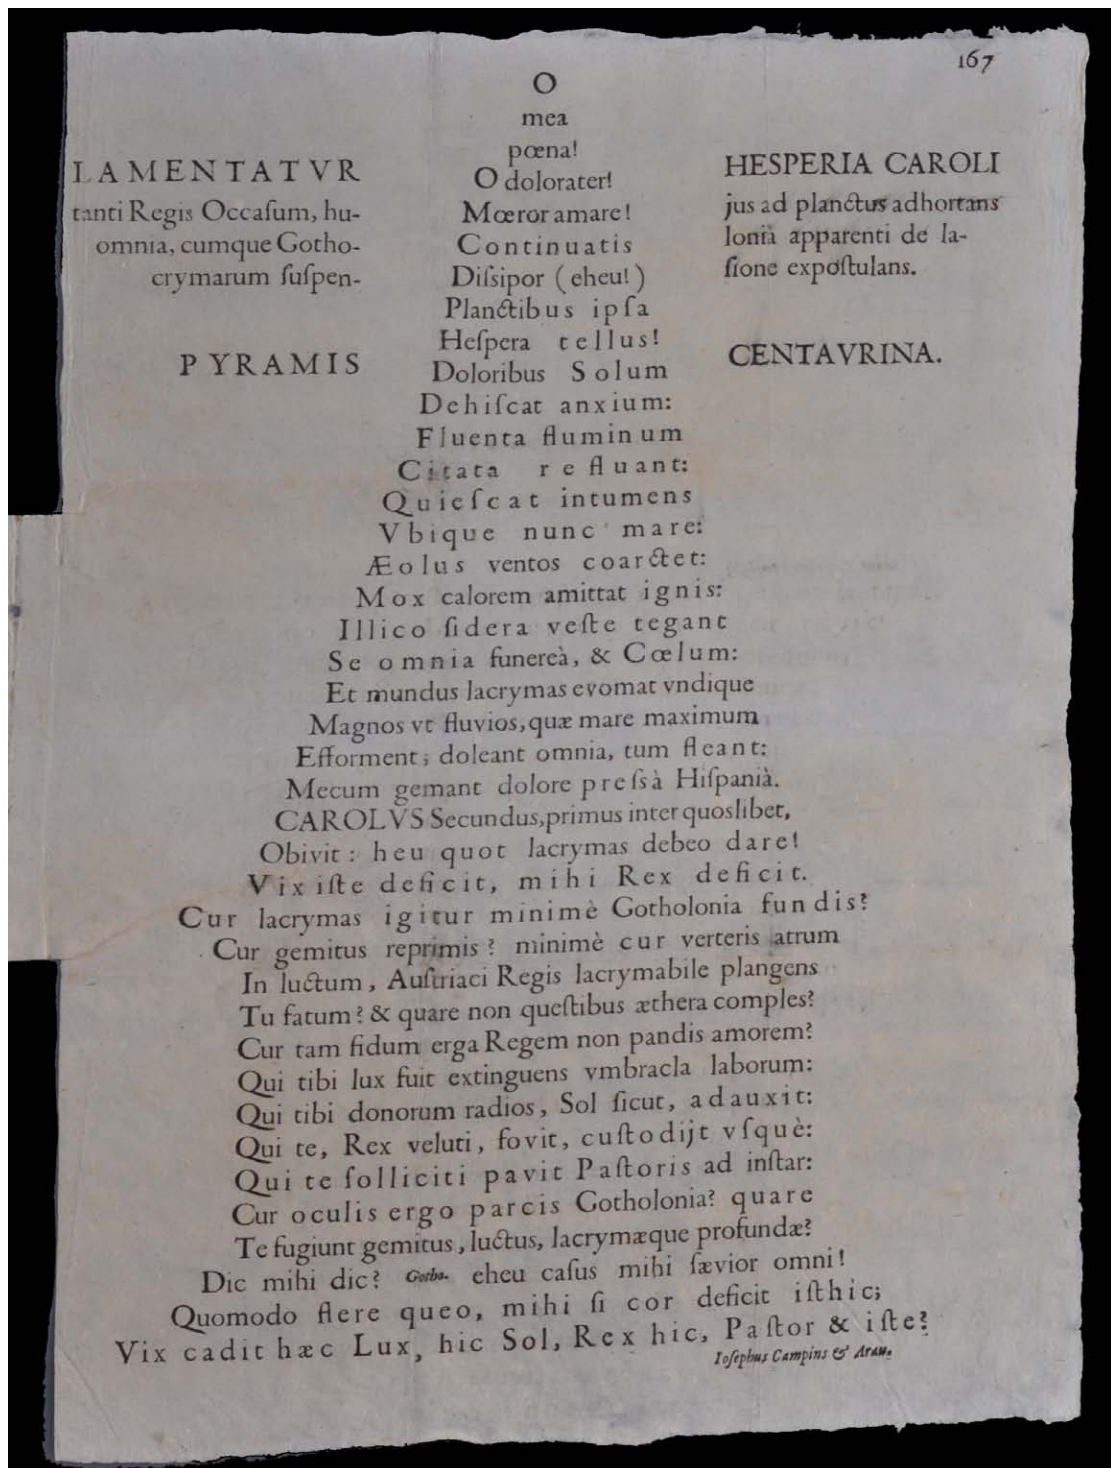 167
LAMENTATVR HESPERIA CAROLI
tanti Regis Occaſum, hu- jus ad planctus adhortans
omnia, cumque Gotho- lonià apparenti de la-
crymarum ſuſpen- ſione expoſtulans.
PYRAMIS CENTAVRINA.
O
mea
pœna!
O dolor ater!
Mœror amare!
Continuatis
Diſsipor (eheu!)
Planctibus ipſa
Heſpera tellus!
Doloribus Solum
Dehiſcat anxium:
Fluenta fluminum
Citata refluant:
Quieſcat intumens
Vbique nunc mare:
Æolus ventos coarctet:
Mox calorem amittat ignis:
Illico ſidera veſte tegant
Se omnia funereà, & Cœlum:
Et mundus lacrymas evomat vndique
Magnos vt fluvios, quæ mare maximum
Efforment; doleant omnia, tum fleant:
Mecum gemant dolore preſsà Hiſpanià.
CAROLVS Secundus, primus inter quoslibet,
Obivit: heu quot lacrymas debeo dare!
Vix iſte deficit, mihi Rex deficit.
Cur lacrymas igitur minimè Gotholonia fundis?
Cur gemitus reprimis? minimè cur verteris atrum
In luctum, Auſtriaci Regis lacrymabile plangens
Tu fatum? & quare non queſtibus æthera comples?
Cur tam fidum erga Regem non pandis amorem?
Qui tibi lux fuit extinguens vmbracla laborum:
Qui tibi donorum radios, Sol ſicut, adauxit:
Qui te, Rex veluti, fovit, cuſtodijt vſquè:
Qui te ſolliciti pavit Paſtoris ad inſtar:
Cur oculis ergo parcis Gotholonia? quare
Te fugiunt gemitus, luctus, lacrymæque profundæ?
Dic mihi dic? Gotho. eheu caſus mihi ſævior omni!
Quomodo flere queo, mihi ſi cor deficit iſthic;
Vix cadit hæc Lux, hic Sol, Rex hic, Paſtor & iſte?
Ioſephus Campins & Arau.